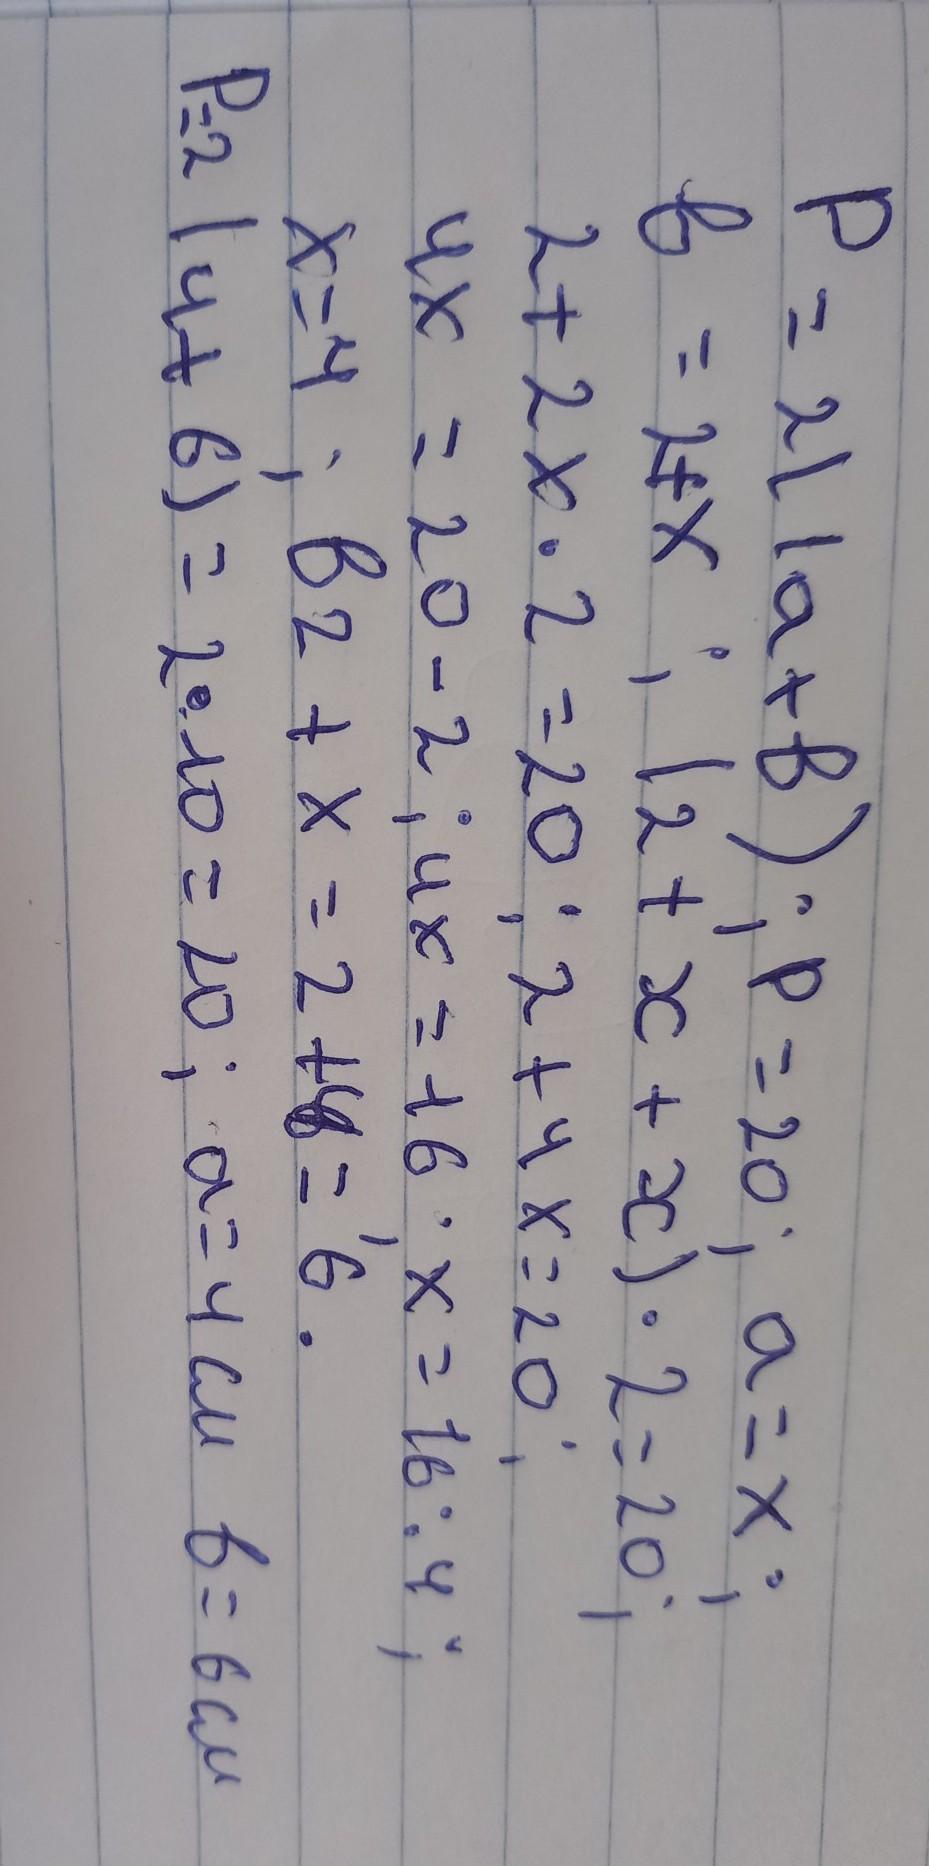 P = 2 (a + в); P = 20; a = x;
в = 2+x; (2 + x + x) · 2 = 20;
2 + 2x · 2 = 20; 2 + 4x = 20;
4x = 20 - 2; 4x = 16. x = 16 : 4;
x = 4; в 2 + x = 2 + 4 = 6.
P = 2 (4 + 6) = 2 · 10 = 20; a = 4 см в = 6 см